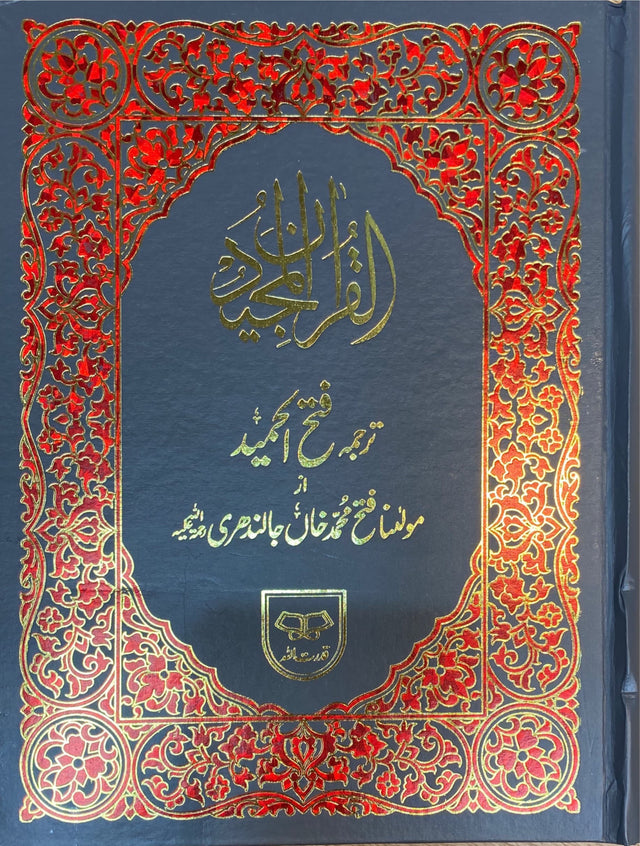 القرآن المجید
ترجمہ فتح الحمید
از
مولٰنا فتح محمد خاں جالندھری رحمۃ اللہ علیہ
قدرت اللہ